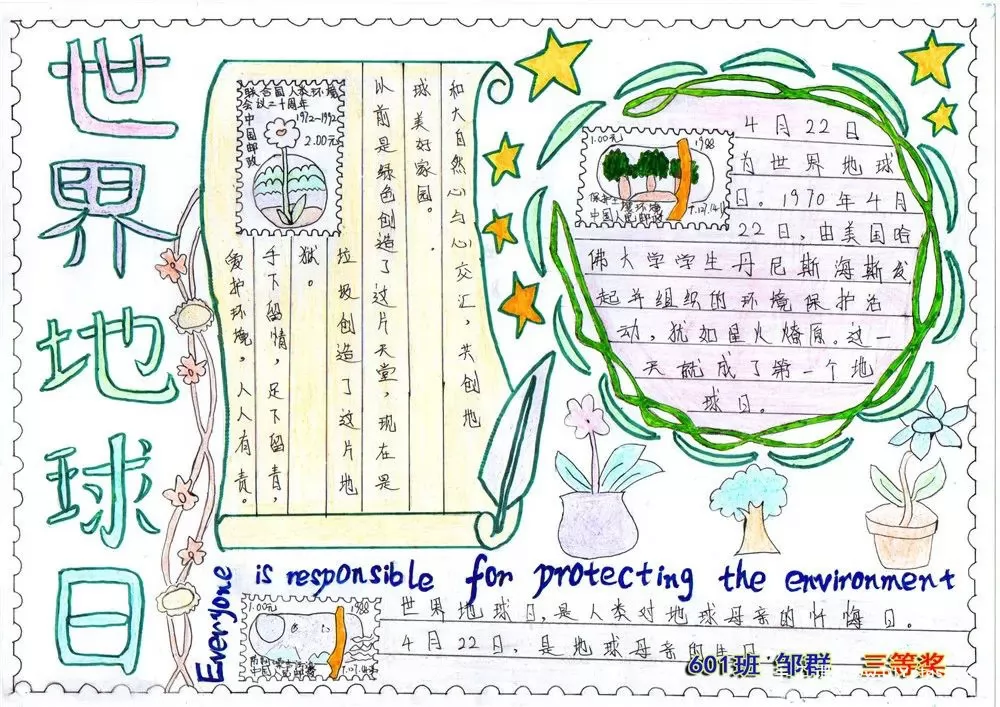 世界地球日
联合国人类环境
会议二十周年
1972~1992
中国邮政
2.00元
和大自然心与心交汇，共创地
球美好家园。
以前是绿色创造了这片天堂，现在是
垃圾创造了这片地
狱。
手下留情，足下留青，
爱护环境，人人有责。
1.00元
1988
中国人民邮政
4月22日
为世界地球
日。1970年4月
22日，由美国哈
佛大学学生丹尼斯海斯发
起并组织的环境保护活
动，犹如星火燎原。这一
天就成了第一个地
球日。
Everyone is responsible for protecting the environment
1.00元
1988
中国人民邮政
世界地球日，是人类对地球母亲的忏悔日。
4月22日，是地球母亲的生日
601班 邹群 三等奖